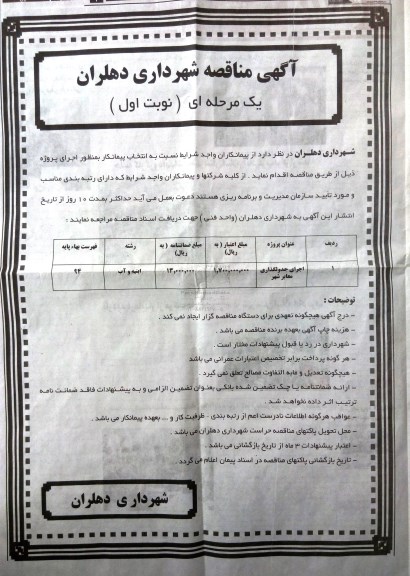 آگهی مناقصه شهرداری دهلران
یک مرحله ای ( نوبت اول )
شهرداری دهلران در نظر دارد از پیمانکاران واجد شرایط نسبت به انتخاب پیمانکار بمنظور اجرای پروژه
ذیل از طریق مناقصه اقدام نماید . از کلیه شرکتها و پیمانکاران واجد شرایط که دارای رتبه بندی مناسب
و مورد تایید سازمان مدیریت و برنامه ریزی هستند دعوت بعمل می آید حداکثر بمدت ۱۰ روز از تاریخ
انتشار این آگهی به شهرداری دهلران (واحد فنی) جهت دریافت اسناد مناقصه مراجعه نمایند :
ردیف عنوان پروژه مبلغ اعتبار ( به ریال) مبلغ ضمانتنامه ( به ریال) رشته فهرست بهاء پایه
۱ اجرای جدولگذاری معابر شهر ابنیه و آب ۹۳
توضیحات :
- درج آگهی هیچگونه تعهدی برای دستگاه مناقصه گزار ایجاد نمی کند .
- هزینه چاپ آگهی بعهده برنده مناقصه می باشد .
- شهرداری در رد یا قبول پیشنهادات مختار است .
- هر گونه پرداخت برابر تخصیص اعتبارات عمرانی می باشد
- هیچگونه تعدیل و مابه التفاوت مصالح تعلق نمی گیرد .
- ارائه ضمانتنامه یا چک تضمین شده بانکی بعنوان تضمین الزامی و به پیشنهادات فاقد ضمانت نامه
ترتیب اثر داده نخواهد شد .
- عواقب هرگونه اطلاعات نادرست اعم از رتبه بندی - ظرفیت کار و ... بعهده پیمانکار می باشد .
- محل تحویل پاکتهای مناقصه حراست شهرداری دهلران می باشد .
- اعتبار پیشنهادات ۳ ماه از تاریخ بازگشائی می باشد .
- تاریخ بازگشائی پاکتهای مناقصه در اسناد پیمان اعلام می گردد .
شهرداری دهلران